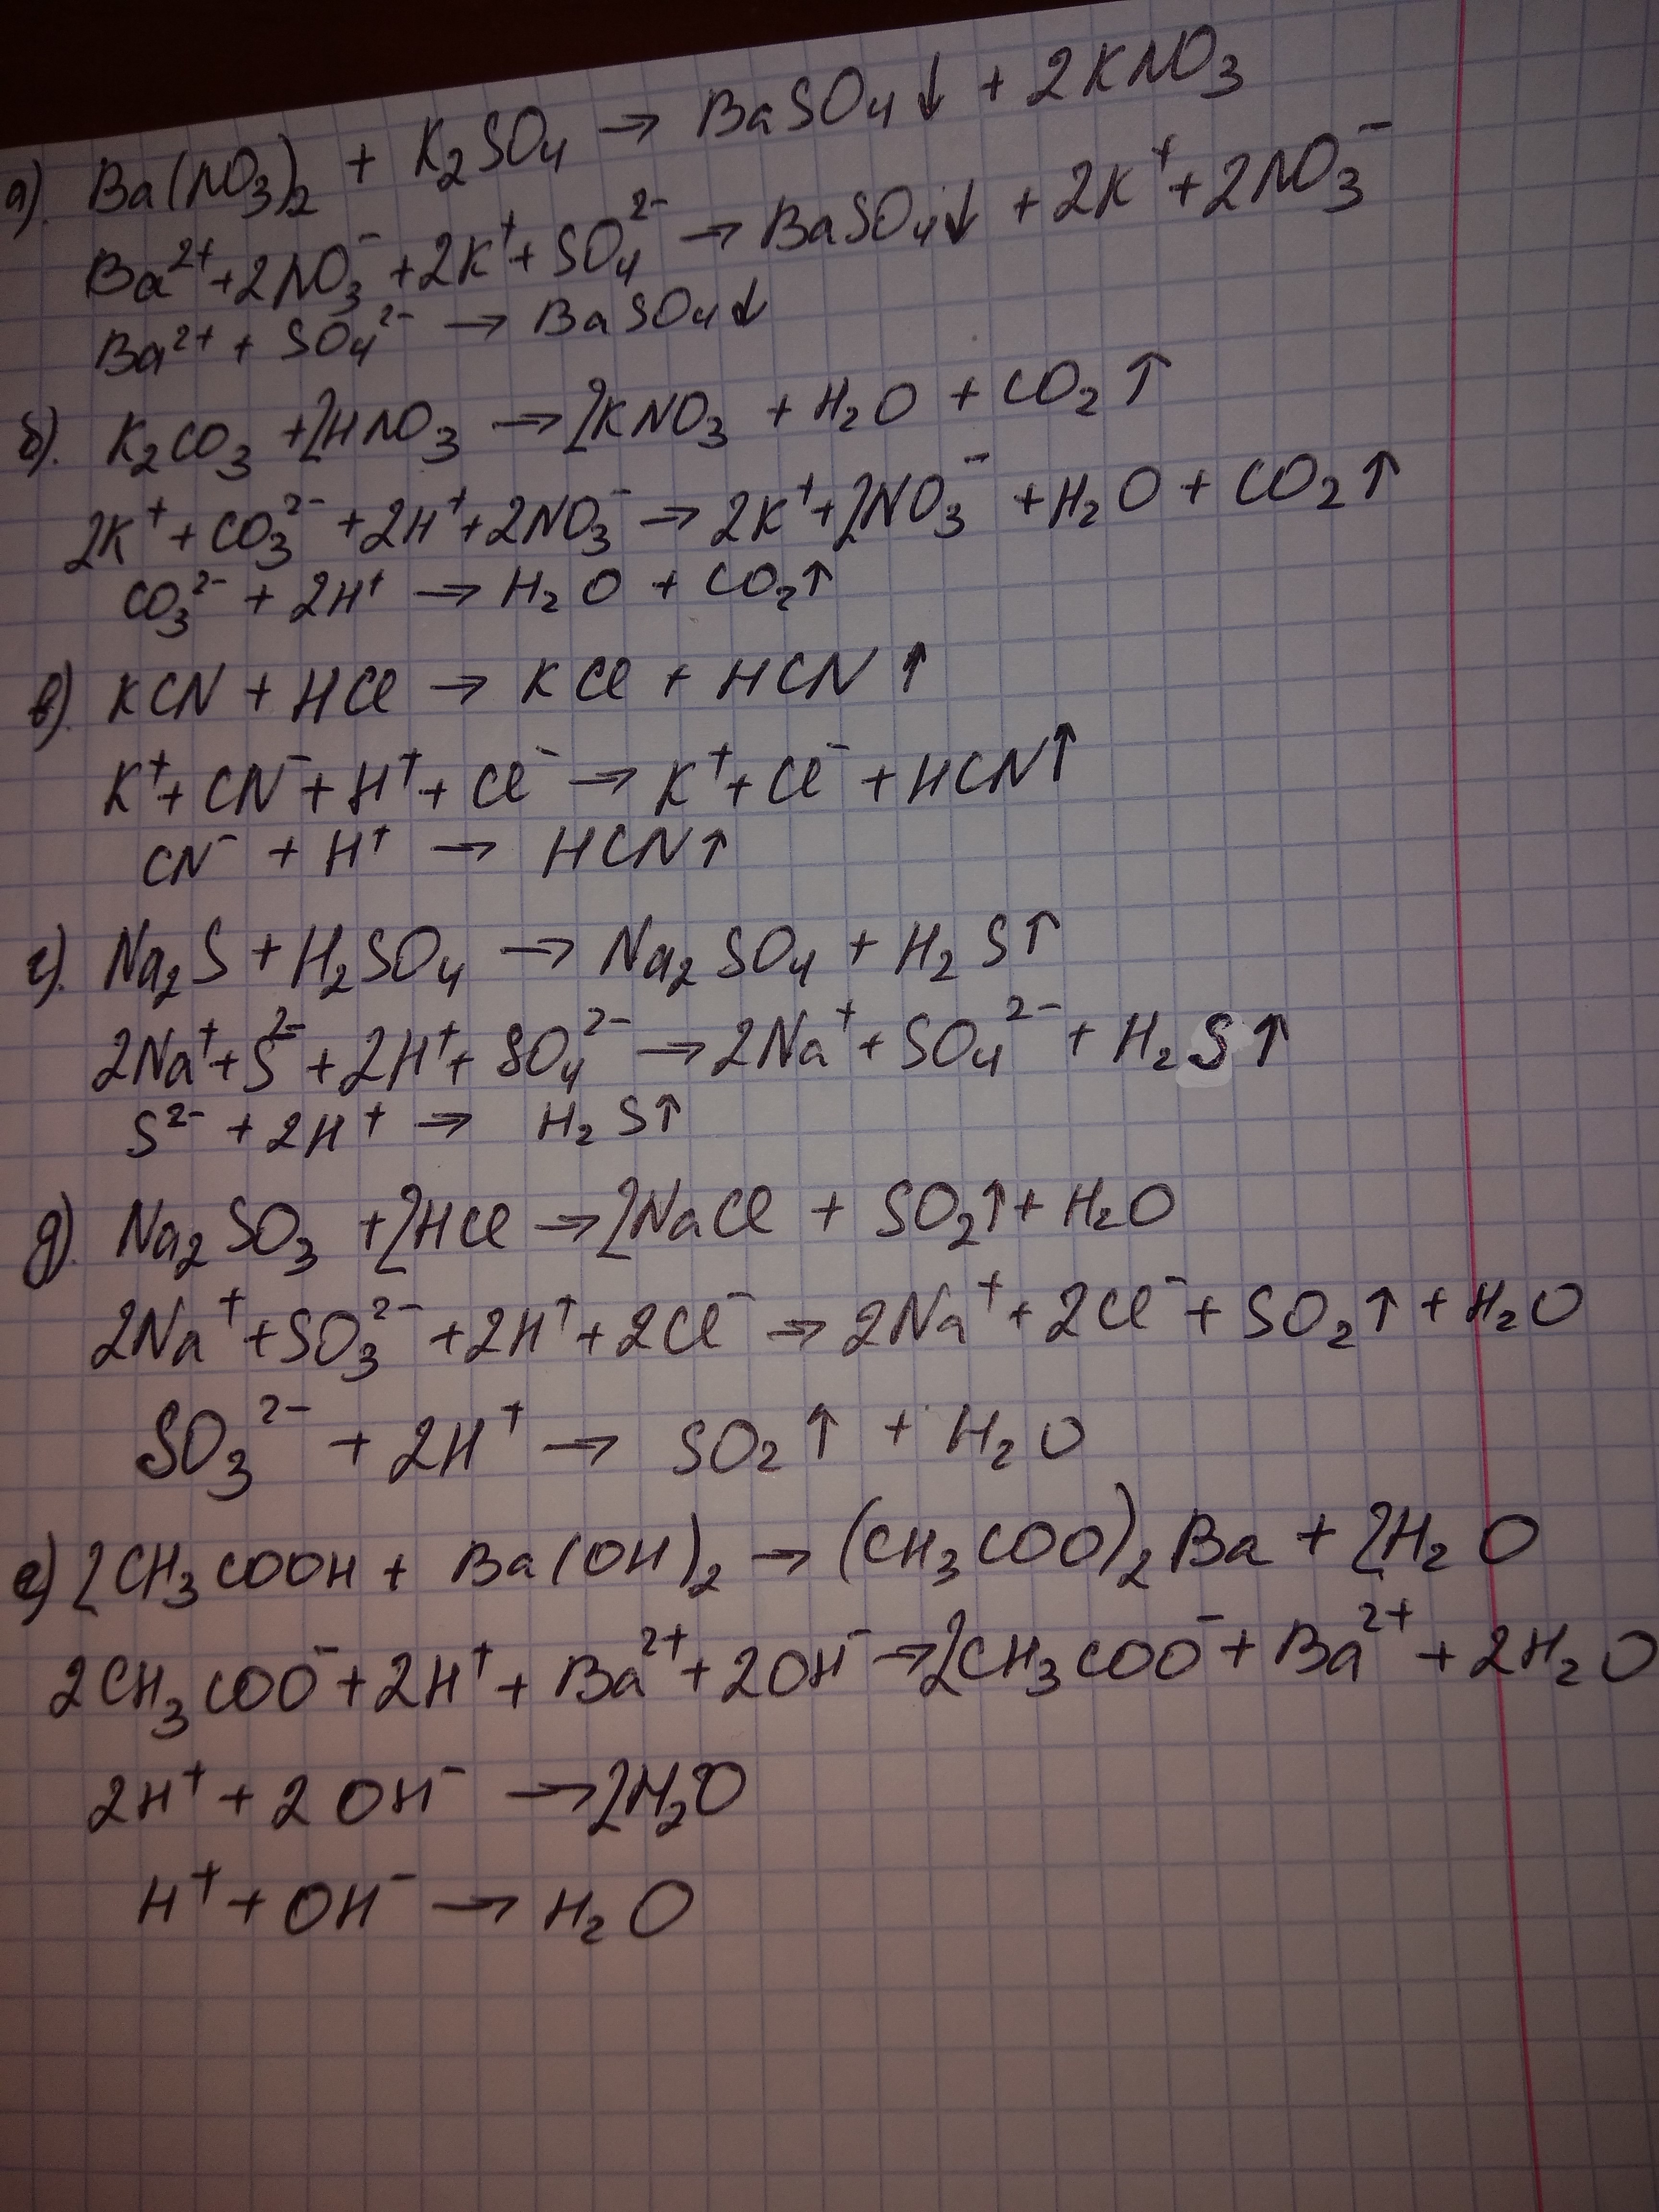 а). Ba(NO₃)₂ + K₂SO₄ → BaSO₄↓ + 2KNO₃
Ba²⁺ + 2NO₃⁻ + 2K⁺ + SO₄²⁻ → BaSO₄↓ + 2K⁺ + 2NO₃⁻
Ba²⁺ + SO₄²⁻ → BaSO₄↓
б). K₂CO₃ + 2HNO₃ → 2KNO₃ + H₂O + CO₂↑
2K⁺ + CO₃²⁻ + 2H⁺ + 2NO₃⁻ → 2K⁺ + 2NO₃⁻ + H₂O + CO₂↑
CO₃²⁻ + 2H⁺ → H₂O + CO₂↑
в). KCN + HCl → KCl + HCN↑
K⁺ + CN⁻ + H⁺ + Cl⁻ → K⁺ + Cl⁻ + HCN↑
CN⁻ + H⁺ → HCN↑
г). Na₂S + H₂SO₄ → Na₂SO₄ + H₂S↑
2Na⁺ + S²⁻ + 2H⁺ + SO₄²⁻ → 2Na⁺ + SO₄²⁻ + H₂S↑
S²⁻ + 2H⁺ → H₂S↑
д). Na₂SO₃ + 2HCl → 2NaCl + SO₂↑ + H₂O
2Na⁺ + SO₃²⁻ + 2H⁺ + 2Cl⁻ → 2Na⁺ + 2Cl⁻ + SO₂↑ + H₂O
SO₃²⁻ + 2H⁺ → SO₂↑ + H₂O
е) 2CH₃COOH + Ba(OH)₂ → (CH₃COO)₂Ba + 2H₂O
2CH₃COO⁻ + 2H⁺ + Ba²⁺ + 2OH⁻ → 2CH₃COO⁻ + Ba²⁺ + 2H₂O
2H⁺ + 2OH⁻ → 2H₂O
H⁺ + OH⁻ → H₂O